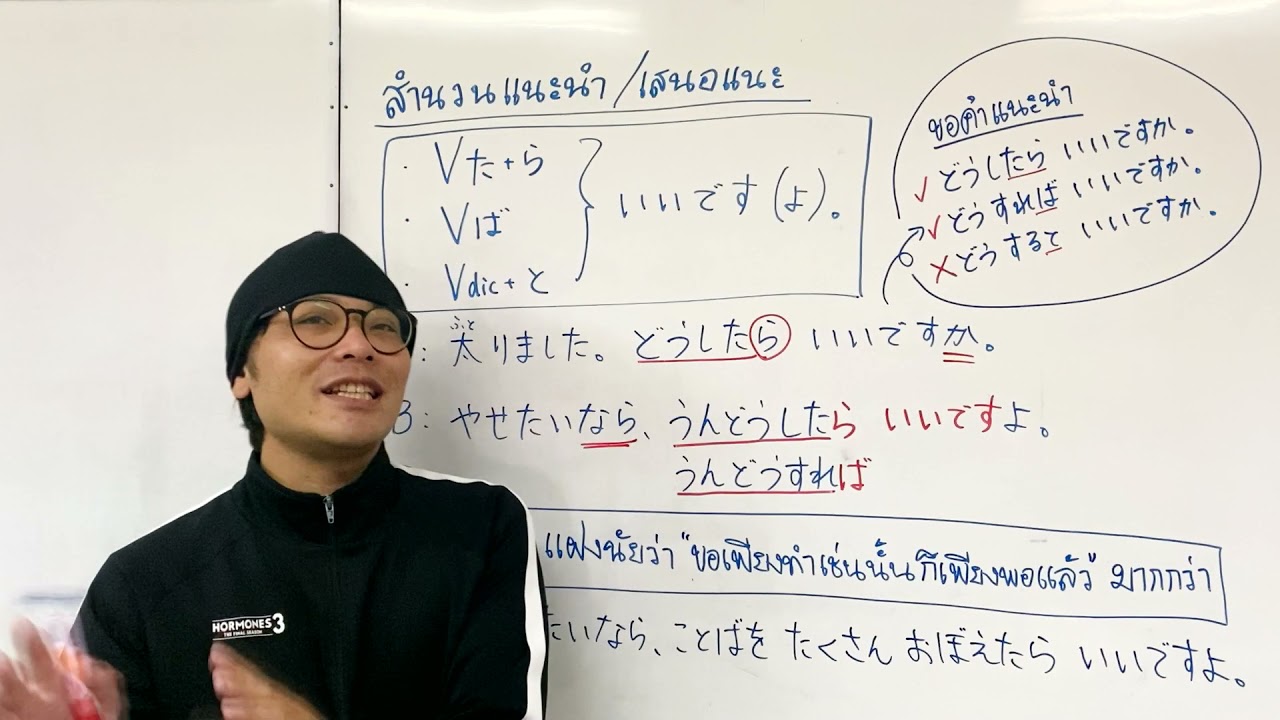 สำนวนแนะนำ/เสนอแนะ
・Vた+ら
・Vば
・Vdic+と
いいです(よ)。
ขอคำแนะนำ
✓どうしたら いいですか。
✓どうすれば いいですか。
✗どうすると いいですか。
ふと
: 太りました。どうしたら いいですか。
B: やせたいなら、うんどうしたら いいですよ。
うんどうすれば
แฝงนัยว่า "ขอเพียงทำเช่นนั้น ก็เพียงพอแล้ว" มากกว่า
たいなら、ことばを たくさん おぼえたら いいですよ。
HORMONES 3
THE FINAL SEASON